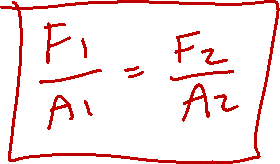 F1/A1 = F2/A2